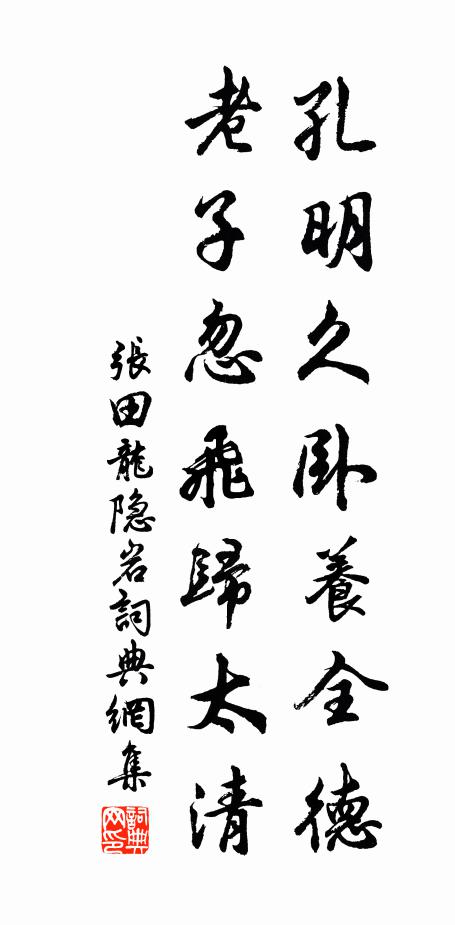 孔明久卧養全德
老子忽飛歸太清
張田龍隐岩詞典網集
詞典网印